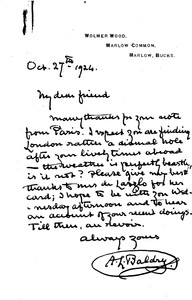 WOLMER WOOD,
MARLOW COMMON,
MARLOW, BUCKS.
Oct. 27th 1924.
My dear friend
Many thanks for your note
from Paris. I expect you are finding
London rather a dismal hole
after your lively times abroad
— the weather is perfectly beastly,
is it not? Please give my best
thanks to Mrs de Laszlo for her
card; I hope to be with you Wed-
nesday afternoon and to hear
an account of your recent doings.
Till then, au revoir.
Always yours
A L Baldry